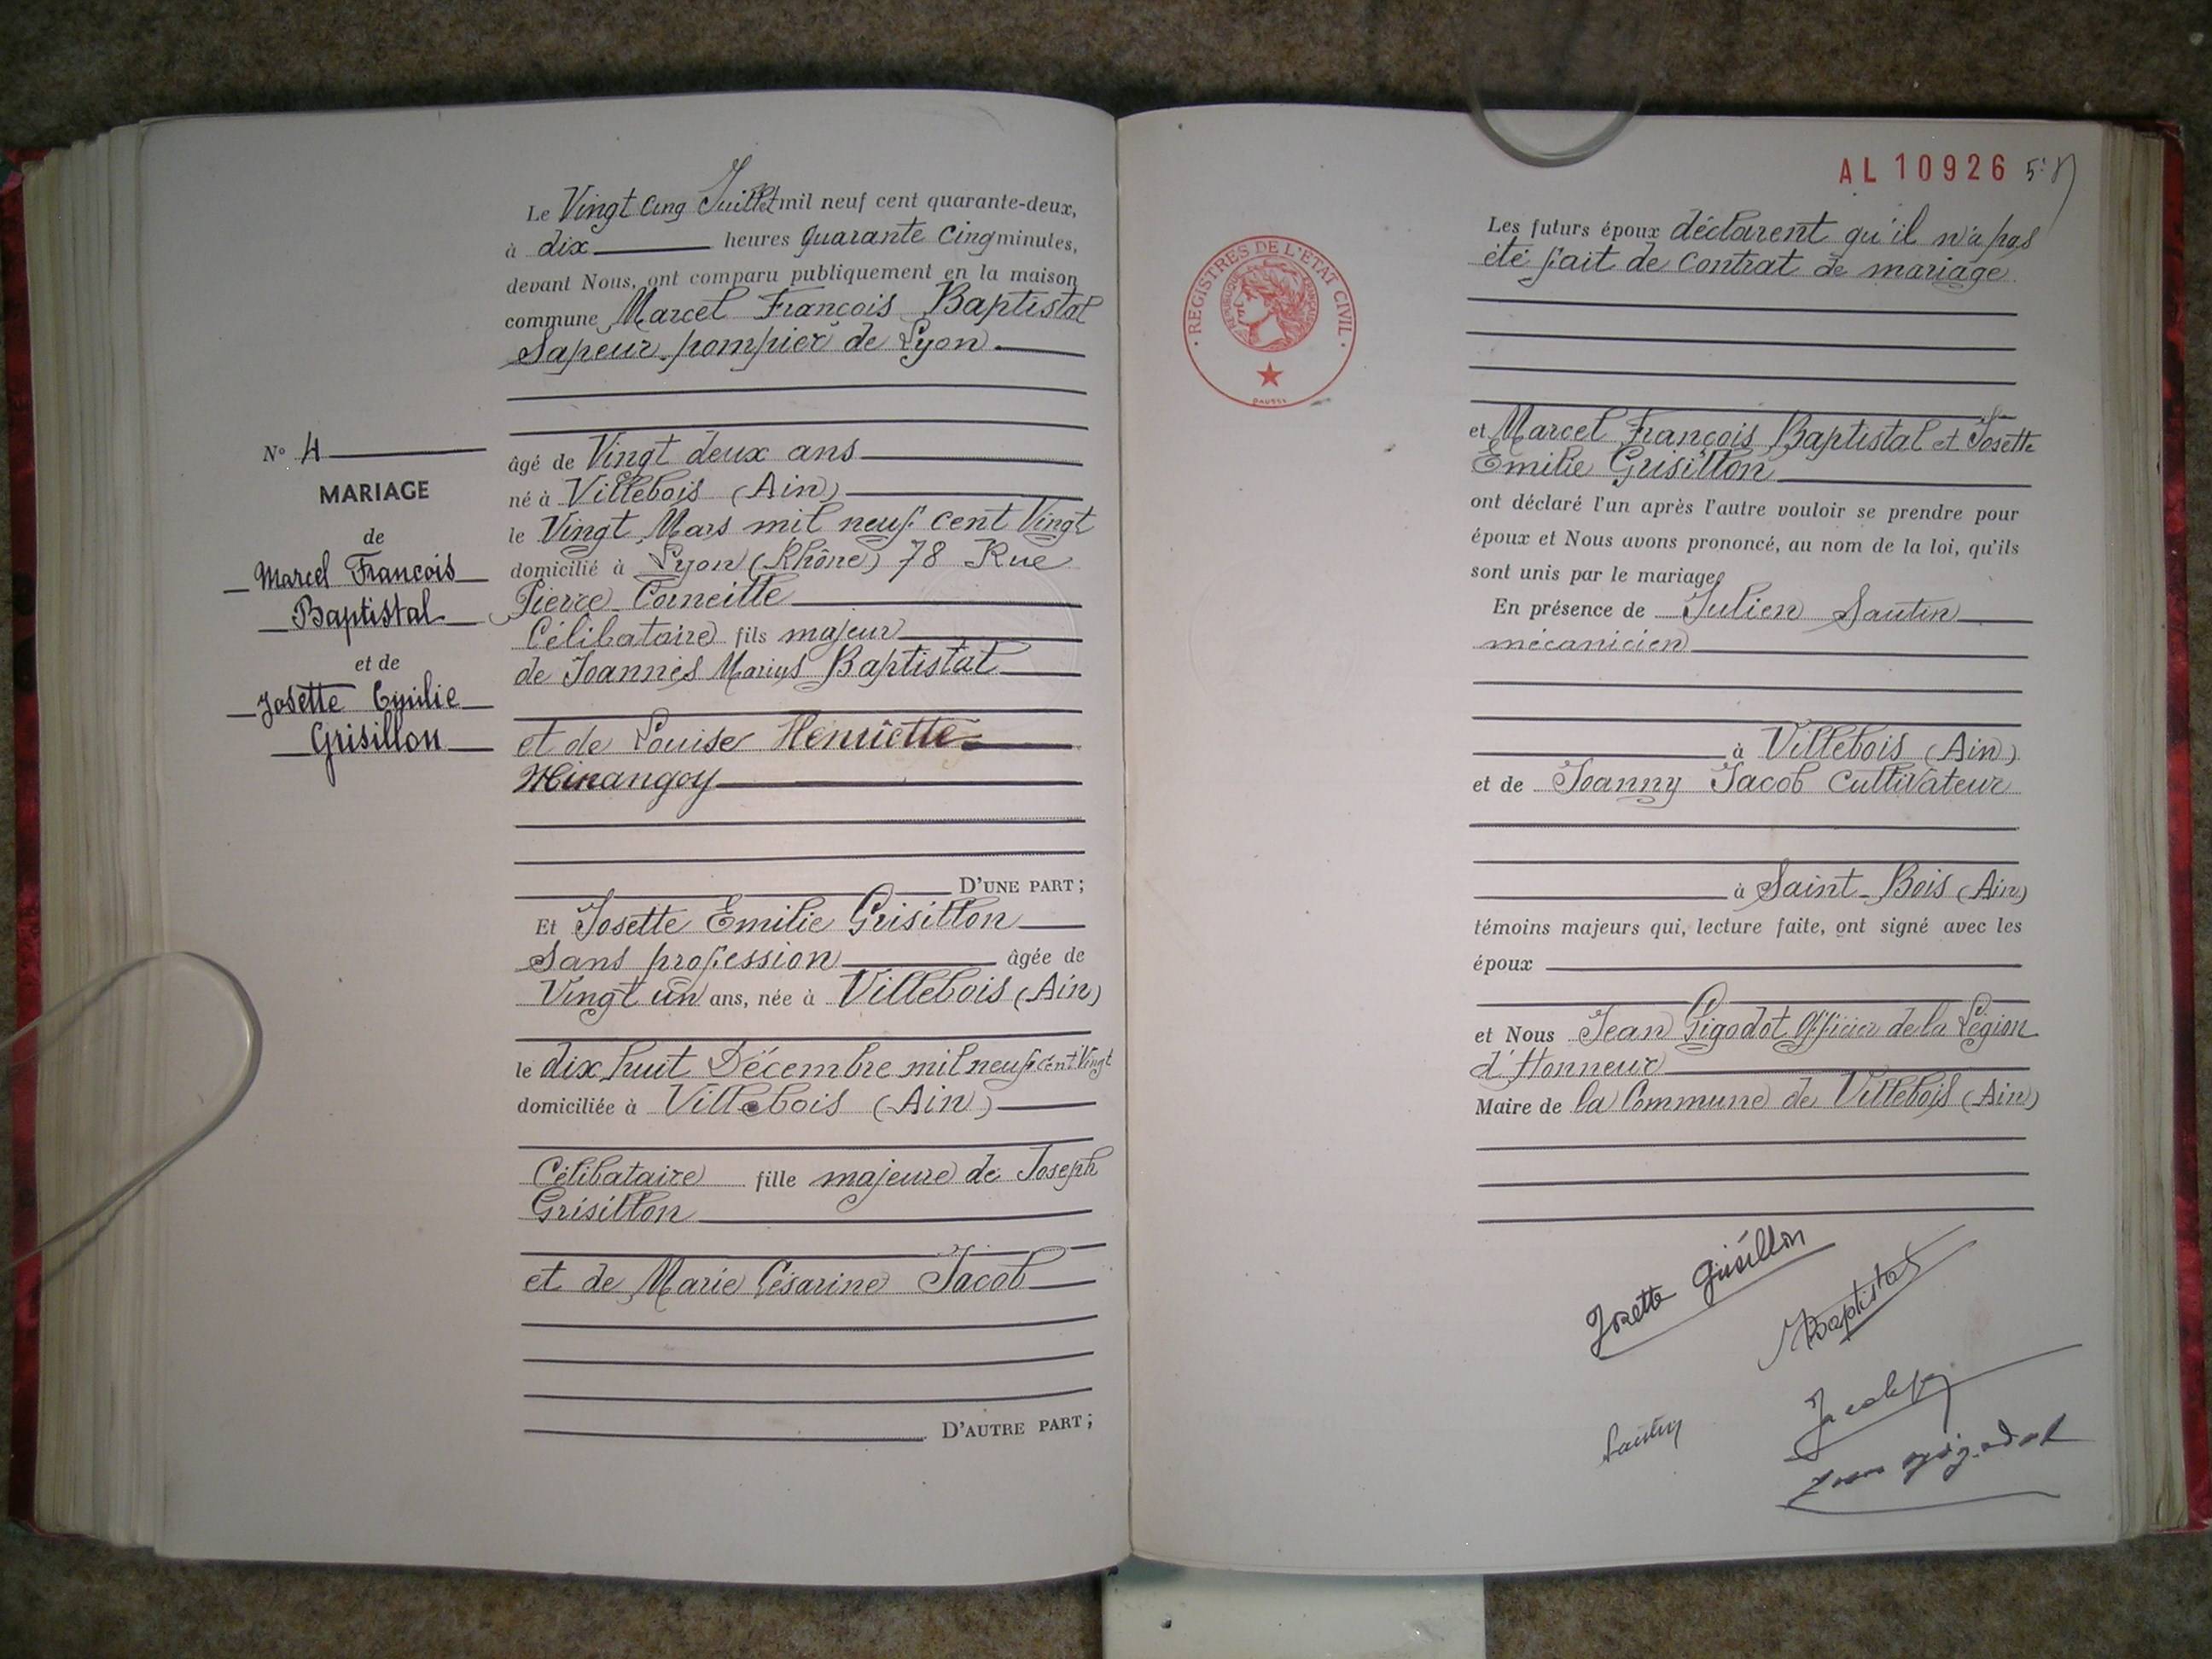 Le Vingt Cinq Juillet mil neuf cent quarante-deux,
à dix heures quarante cinq minutes,
devant Nous, ont comparu publiquement en la maison
commune Marcel François Baptistal
Sapeur-pompier de Lyon
N° 4
MARIAGE
de
Marcel Francois
Baptistal
et de
Josette Emilie
Grisillon
âgé de Vingt deux ans
né à Villebois (Ain)
le Vingt Mars mil neuf cent Vingt
domicilié à Lyon (Rhône) 78 Rue
Pierre Corneille
Célibataire fils majeur
de Joannès Marius Baptistal
et de Louise Henriette
Minangoy
D'UNE PART;
Et Josette Emilie Grisillon
Sans profession âgée de
Vingt un ans, née à Villebois (Ain)
le dix huit Décembre mil neuf cent Vingt
domiciliée à Villebois (Ain)
Célibataire fille majeure de Joseph
Grisillon
et de Marie Césarine Jacob
D'AUTRE PART;
AL 10926
REGISTRES DE L'ÉTAT CIVIL
RÉPUBLIQUE FRANÇAISE
Les futurs époux déclarent qu'il n'a pas
été fait de contrat de mariage
et Marcel François Baptistal et Josette
Emilie Grisillon
ont déclaré l'un après l'autre vouloir se prendre pour
époux et Nous avons prononcé, au nom de la loi, qu'ils
sont unis par le mariage
En présence de Julien Sautin
mécanicien
à Villebois (Ain)
et de Joanny Jacob Cultivateur
à Saint-Bois (Ain)
témoins majeurs qui, lecture faite, ont signé avec les
époux
et Nous Jean Gigodot Officier de la Légion
d'Honneur
Maire de la Commune de Villebois (Ain)
Josette Grisillon
Baptistal
Sautin
Jean Gigodot